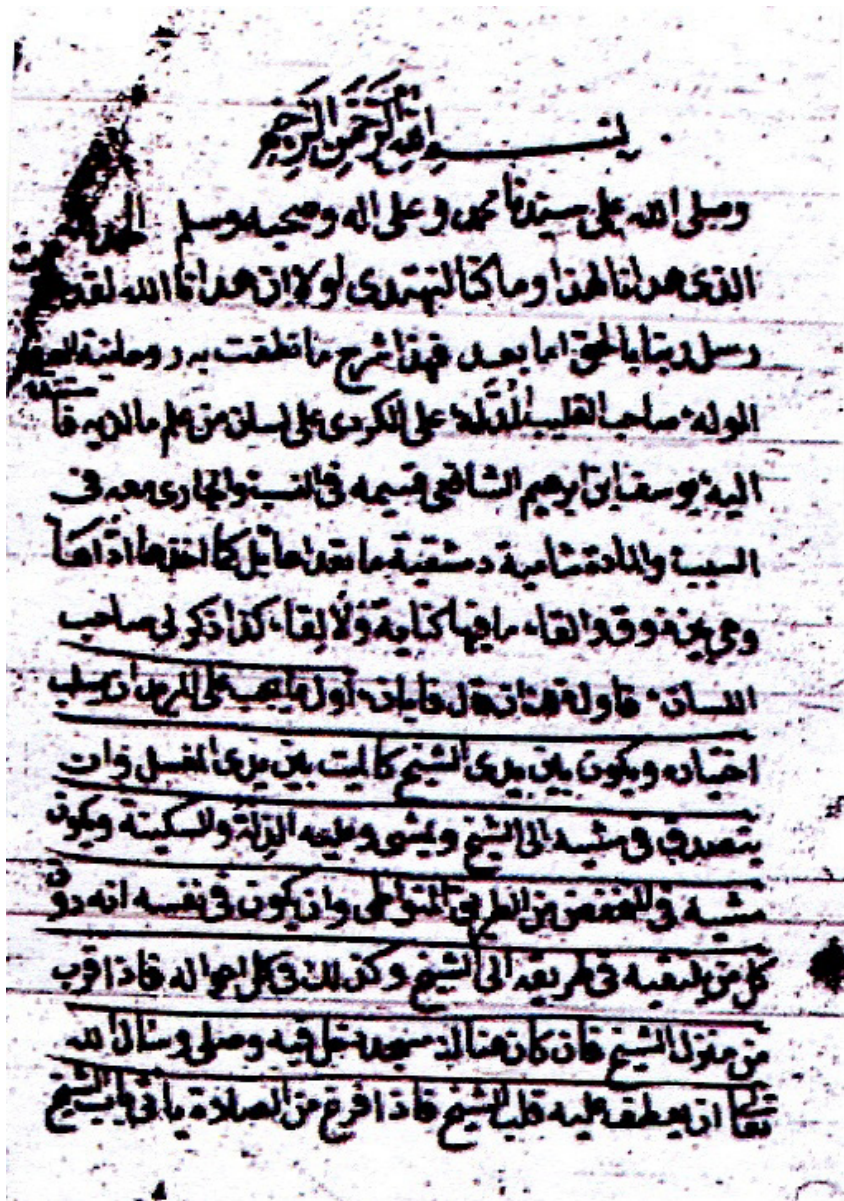 بسم الله الرحمن الرحيم
وصلى الله على سيدنا محمد وعلى اله وصحبه وسلم الحمد لله
الذى هدانا لهذا وما كنا لنهتدى لولا ان هدانا الله لقد
رسل ربنا بالحق اما بعد فهذا شرح ما نطقت به روحانية
الموله صاحب القلب المدله على الكردى على لسان من علم ما لديه
اليه يوسف ابن ابرهيم الشافعى قسيمه فى النسب والجارى معه فى
السبب والمادة شامية دمشقية ما بعدها
وهى ذوق والقاء ما فيها كناية ولا لقاء كذا ذكر لى صاحب
اللسان فاوله ان قال اول ما يجب على المريد ان يسلب
اختياره ويكون بين يدى الشيخ كالميت بين يدى المغسل وان
يتصدق فى مشيه الى الشيخ ويمشى وعليه الذلة والسكينة ويكون
مشيه فى المنخفض من الطريق المتواطى وان يكون فى نفسه انه دون
كل من يلتقيه فى طريقه الى الشيخ وكذلك فى كل احواله فاذا قرب
من منزل الشيخ فان كان هنالك مسجد دخل فيه وصلى وسال الله
تعالى ان يعطف عليه قلب الشيخ فاذا فرغ من الصلاة ياتى باب الشيخ